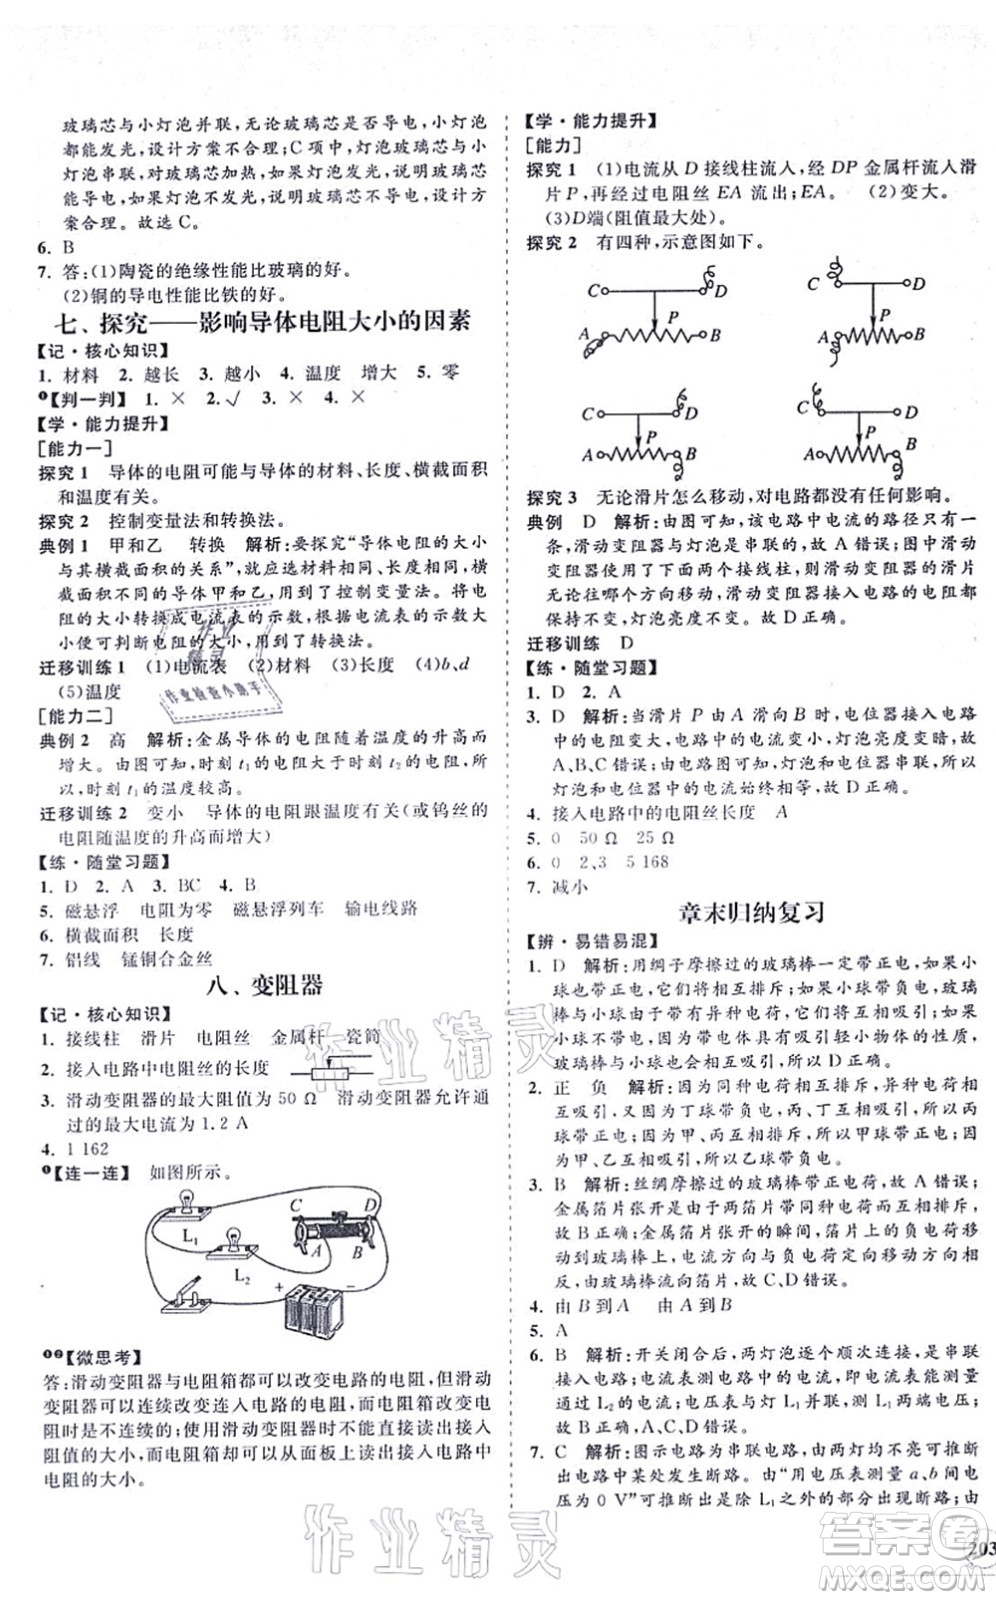 玻璃芯与小灯泡并联,无论玻璃芯是否导电,小灯泡
都能发光,设计方案不合理;C 项中,灯泡玻璃芯与小
灯泡串联,对玻璃芯加热,如果灯泡发光,说明玻璃芯
导电,如果灯泡不发光,说明玻璃芯不导电,设计方
案合理。故选 C。
6. B
7. 答:(1)陶瓷的绝缘性能比玻璃的好。
(2)铜的导电性能比铁的好。
七、探究——影响导体电阻大小的因素
【记·核心知识】
1. 材料 2. 越长 3. 越小 4. 温度 增大 5. 零
❶【判一判】 1. × 2. √ 3. × 4. ×
【学·能力提升】
[能力一]
探究 1 导体的电阻可能与导体的材料、长度、横截面积
和温度有关。
探究 2 控制变量法和转换法。
典例 1 甲和乙 转换 解析:要探究“导体电阻的大小
与其横截面积的关系”,就应选择材料、长度相同,横
截面积不同的导体甲和乙,用到了控制变量法。将
电阻的大小转换成电流表的示数,根据电流表的示数大
小便可判断电阻的大小,用到了转换法。
迁移训练 1 (1)电流表 (2)材料 (3)长度 (4)b、d
(5)温度
[能力二]
典例 2 高 解析:金属导体的电阻随着温度的升高而
增大。由图可知,时刻 t₁ 的电阻大于时刻 t₂ 的电阻,所
以,时刻 t₁ 的温度较高。
迁移训练 2 变小 导体的电阻跟温度有关(或钨丝的
电阻随温度的升高而增大)
【练·随堂习题】
1. D 2. A 3. BC 4. B
5. 磁悬浮 电阻为零 磁悬浮列车 输电线路
6. 横截面积 长度
7. 铝线 锰铜合金丝
八、变阻器
【记·核心知识】
1. 接线柱 滑片 电阻丝 金属杆 瓷筒
2. 接入电路中电阻丝的长度
3. 滑动变阻器的最大阻值为 50 Ω 滑动变阻器允许通
过的最大电流为 1.2 A
4. 1 162
❶【连一连】 如图所示。
L₁
L₂
C D
A B
+ −
❶❷【微思考】
答:滑动变阻器与电阻箱都可以改变电路的电阻,但滑动
变阻器可以连续改变连入电路的电阻,而电阻箱改变电
阻时是不连续的;使用滑动变阻器时不能直接读出接入
阻值的大小,而电阻箱却可以从面板上读出接入电路中
电阻的大小。
【学·能力提升】
[能力]
探究 1 (1)电流从 D 接线柱流入,经 DP 金属杆流入滑
片 P,再经过电阻丝 EA 流出;EA。 (2)变大。
(3)D端(阻值最大处)。
探究 2 有四种,示意图如下。
C D
P
A B
C D
P
A B
C D
P
A B
C D
P
A B
探究 3 无论滑片怎么移动,对电路都没有任何影响。
典例 D 解析:由图可知,该电路中电流的路径只有一
条,滑动变阻器与灯泡是串联的,故 A 错误;图中滑动
变阻器接了下面两个接线柱,则滑动变阻器的滑片
无论向哪个方向移动,变阻器接入电路的电阻都
保持不变,灯泡亮度不变。故 D 正确。
迁移训练 D
【练·随堂习题】
1. D 2. A
3. D 解析:当滑片 P 由 A 滑向 B 时,电位器接入电路
中的电阻变大,电路中的电流变小,灯泡亮度变暗,故
A、B、C 错误;由图可知,灯泡和电位器串联,所以灯
泡和电位器中的电流始终相等,故 D 正确。
4. 接入电路中的电阻丝长度 A
5. 0 50 Ω 25 Ω
6. 0 2、3 5 168
7. 减小
章末归纳复习
【辨·易错易混】
1. D 解析:用绸子摩擦过的玻璃棒一定带正电,如果小
球也带正电,它们会相互排斥;如果小球带负电,玻
璃棒与小球由于带异种电荷而相互吸引;如果小
球不带电,由于带电体具有吸引轻小物体的性质,
玻璃棒与小球也会相互吸引,所以 D 正确。
2. 正 负 解析:根据同种电荷相互排斥,异种电荷相
互吸引,因为丁球带负电,丙、丁互相排斥,所以丙球带
负电;因为甲、丙相互吸引,所以甲球带正电,
因为甲、乙相互吸引,所以乙球带负电。
3. B 解析:丝绸摩擦过的玻璃棒带正电,故 A 错误;
金属箔片张开是由于两箔片带同种电荷相互排斥,
故 B 正确;金属箔片张开的瞬间,箔片上的负电荷移动
到玻璃棒上,电流方向与负电荷定向移动方向相
反,即由玻璃棒流向箔片,故 C、D 错误。
4. 由 B 到 A 由 A 到 B
5. A
6. B 解析:开关闭合后,两灯泡逐个顺次连接,是串联
电路;电流表测电路中的电流,即电流表能测量
通过 L₂ 的电流;电压表与 L₁ 并联,测 L₁ 两端电压;
故 B 正确,A、C、D 错误。
7. C 解析:图示电路为串联电路,由两灯均不亮可推断
出电路中某处发生断路。由“用电压表测量 a、b 间电
压为 0 V”可推断是除 L₁ 之外的部分出现断路;由
203
作业精灵
作业检查小助手
作业精灵
作业精灵
答案圈
MXQE.COM